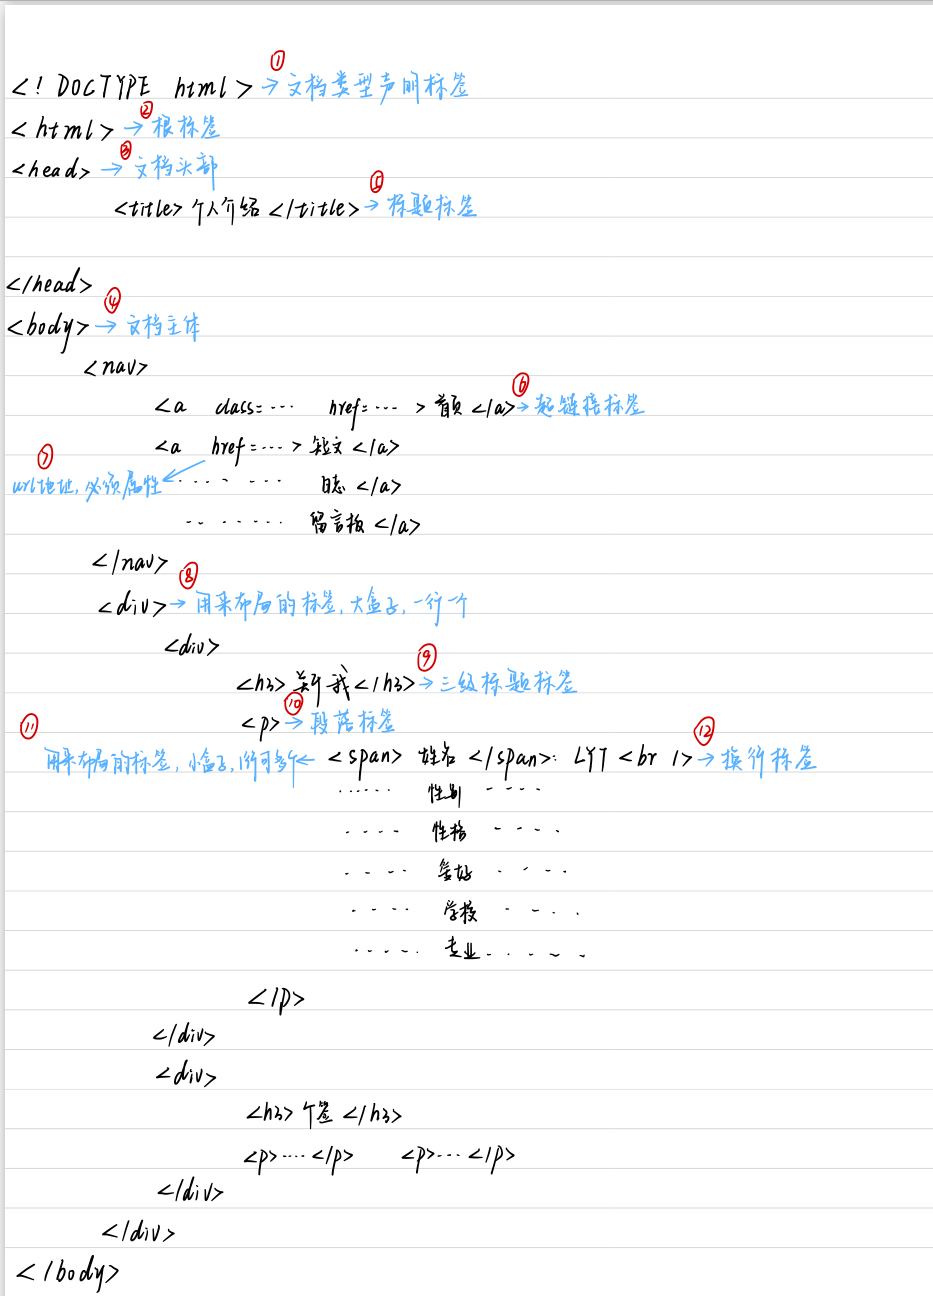 <! DOCTYPE html> ① → 文档类型声明标签
<html> ② → 根标签
<head> ③ → 文档头部
<title> 个人介绍 </title> ⑤ → 标题标签
</head>
<body> ④ → 文档主体
<nav>
<a class=… href=… > 首页 </a> ⑥ → 超链接标签
<a href=… > 短文 </a>
⑦ url地址, 必须属性 ← ···· ·· ··· 日志 </a>
·· ······ 留言板 </a>
</nav>
<div> ⑧ → 用来布局的标签, 大盒子, 一行一个
<div>
<h3> 关于我 </h3> ⑨ → 三级标题标签
<p> ⑩ → 段落标签
⑪ 用来布局的标签, 小盒子, 1行可多个 ← <span> 姓名 </span>: LYT <br /> ⑫ → 换行标签
····· 性别 ····
···· 性格 ····
···· 喜好 ····
···· 学校 ····
····· 专业 ·····
</p>
</div>
<div>
<h3> 个签 </h3>
<p>····</p> <p>···</p>
</div>
</div>
</body>